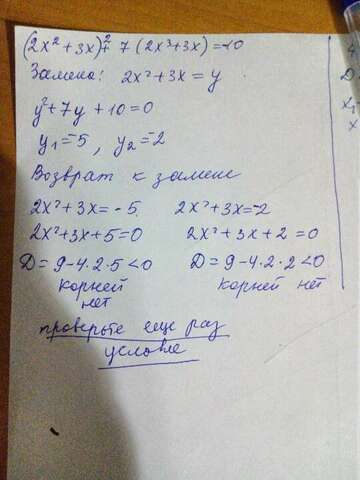 (2x²+3x)²+ 7 (2x²+3x)=-10
Замена: 2x²+3x=y
y²+7y+10=0
y₁=-5, y₂=-2
Возврат к замене
2x²+3x=-5. 2x²+3x=-2
2x²+3x+5=0 2x²+3x+2=0
D=9-4.2.5<0 D=9-4.2.2<0
корней корней нет
нет
проверьте еще раз
условие